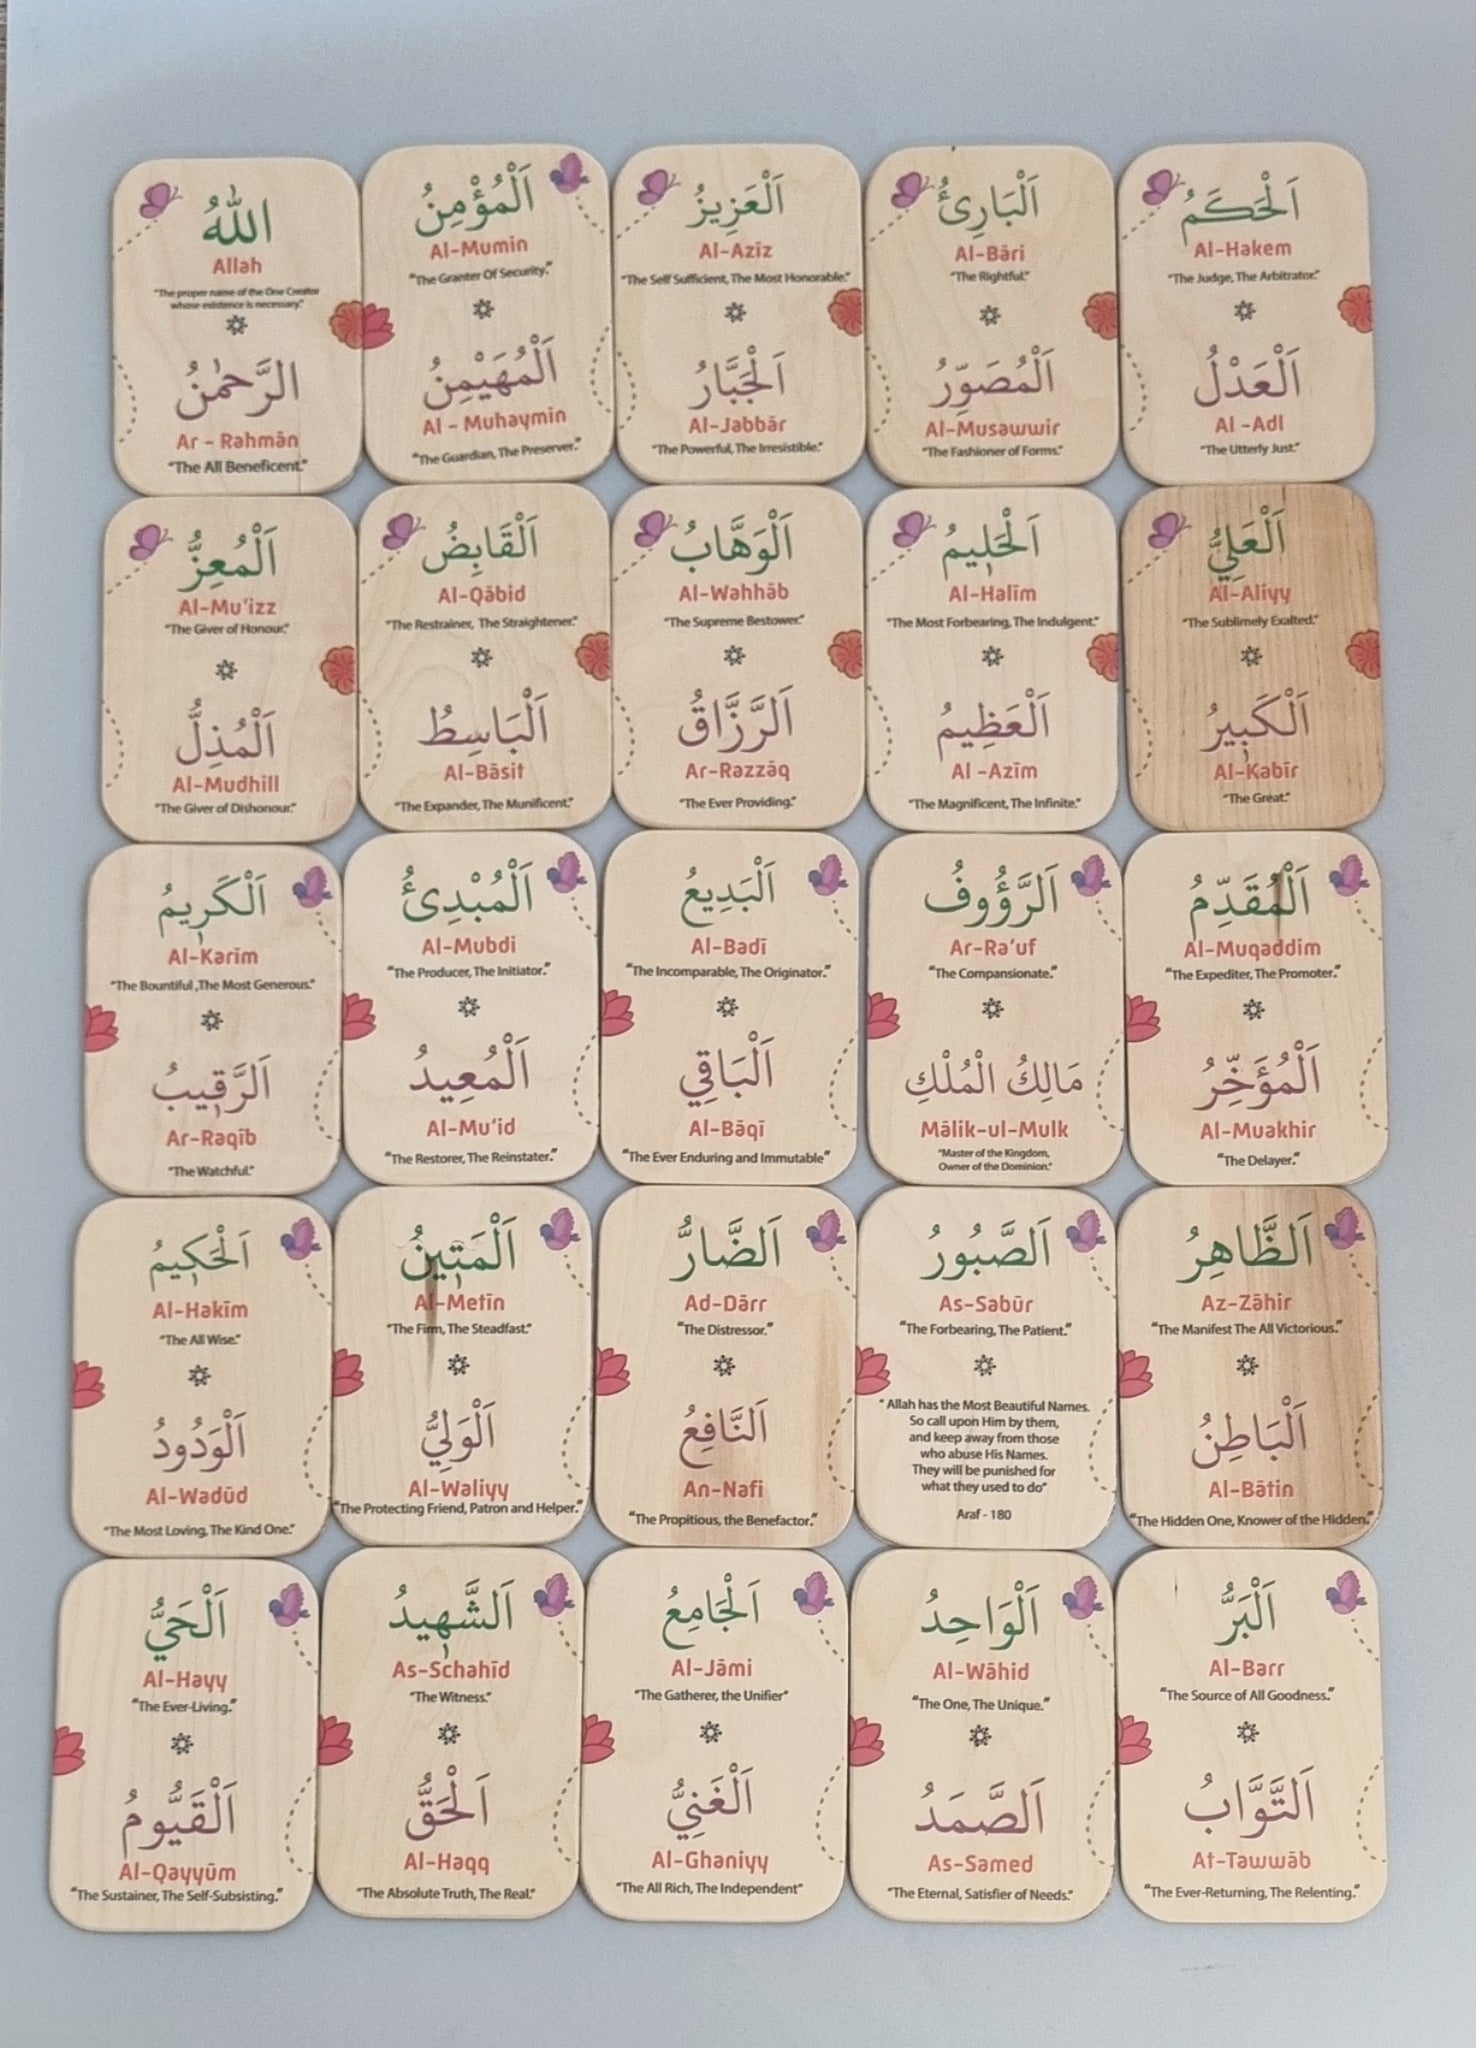 اَللّٰهُ
Allah
"The proper name of the One Creator
whose existence is necessary."
اَلرَّحْمٰنُ
Ar - Rahmān
"The All Beneficent."
اَلْمُؤْمِنُ
Al-Mumin
"The Granter Of Security."
اَلْمُهَيْمِنُ
Al - Muhaymin
"The Guardian, The Preserver."
اَلْعَزِيزُ
Al-Azīz
"The Self Sufficient, The Most Honorable."
اَلْجَبَّارُ
Al-Jabbār
"The Powerful, The Irresistible."
اَلْبَارِئُ
Al-Bāri
"The Rightful."
اَلْمُصَوِّرُ
Al-Musawwir
"The Fashioner of Forms."
اَلْحَكَمُ
Al-Hakem
"The Judge, The Arbitrator."
اَلْعَدْلُ
Al -Adl
"The Utterly Just."
اَلْمُعِزُّ
Al-Mu'izz
"The Giver of Honour."
اَلْمُذِلُّ
Al-Mudhill
"The Giver of Dishonour."
اَلْقَابِضُ
Al-Qābid
"The Restrainer, The Straightener."
اَلْبَاسِطُ
Al-Bāsit
"The Expander, The Munificent."
اَلْوَهَّابُ
Al-Wahhāb
"The Supreme Bestower."
اَلرَّزَّاقُ
Ar-Razzāq
"The Ever Providing."
اَلْحَلِيمُ
Al-Halīm
"The Most Forbearing, The Indulgent."
اَلْعَظِيمُ
Al -Azīm
"The Magnificent, The Infinite."
اَلْعَلِيُّ
Al-Aliyy
"The Sublimely Exalted."
اَلْكَبِيرُ
Al-Kabīr
"The Great."
اَلْكَرِيمُ
Al-Karīm
"The Bountiful ,The Most Generous."
اَلرَّقِيبُ
Ar-Raqīb
"The Watchful."
اَلْمُبْدِئُ
Al-Mubdi
"The Producer, The Initiator."
اَلْمُعِيدُ
Al-Mu'id
"The Restorer, The Reinstater."
اَلْبَدِيعُ
Al-Badī
"The Incomparable, The Originator."
اَلْبَاقِي
Al-Bāqī
"The Ever Enduring and Immutable"
اَلرَّؤُوفُ
Ar-Ra'uf
"The Compansionate."
مَالِكُ الْمُلْكِ
Mālik-ul-Mulk
"Master of the Kingdom,
Owner of the Dominion."
اَلْمُقَدِّمُ
Al-Muqaddim
"The Expediter, The Promoter."
اَلْمُؤَخِّرُ
Al-Muakhir
"The Delayer."
اَلْحَكِيمُ
Al-Hakīm
"The All Wise."
اَلْوَدُودُ
Al-Wadūd
"The Most Loving, The Kind One."
اَلْمَتِينُ
Al-Metīn
"The Firm, The Steadfast."
اَلْوَلِيُّ
Al-Waliyy
"The Protecting Friend, Patron and Helper."
اَلضَّارُّ
Ad-Dārr
"The Distressor."
اَلنَّافِعُ
An-Nafi
"The Propitious, the Benefactor."
اَلصَّبُورُ
As-Sabūr
"The Forbearing, The Patient."
" Allah has the Most Beautiful Names.
So call upon Him by them,
and keep away from those
who abuse His Names.
They will be punished for
what they used to do"
Araf - 180
اَلظَّاهِرُ
Az-Zāhir
"The Manifest The All Victorious."
اَلْبَاطِنُ
Al-Bātin
"The Hidden One, Knower of the Hidden."
اَلْحَيُّ
Al-Hayy
"The Ever-Living."
اَلْقَيُّومُ
Al-Qayyūm
"The Sustainer, The Self-Subsisting."
اَلشَّهِيدُ
As-Schahīd
"The Witness."
اَلْحَقُّ
Al-Haqq
"The Absolute Truth, The Real."
اَلْجَامِعُ
Al-Jāmi
"The Gatherer, the Unifier"
اَلْغَنِيُّ
Al-Ghaniyy
"The All Rich, The Independent"
اَلْوَاحِدُ
Al-Wāhid
"The One, The Unique."
اَلصَّمَدُ
As-Samed
"The Eternal, Satisfier of Needs."
اَلْبَرُّ
Al-Barr
"The Source of All Goodness."
اَلتَّوَّابُ
At-Tawwāb
"The Ever-Returning, The Relenting."